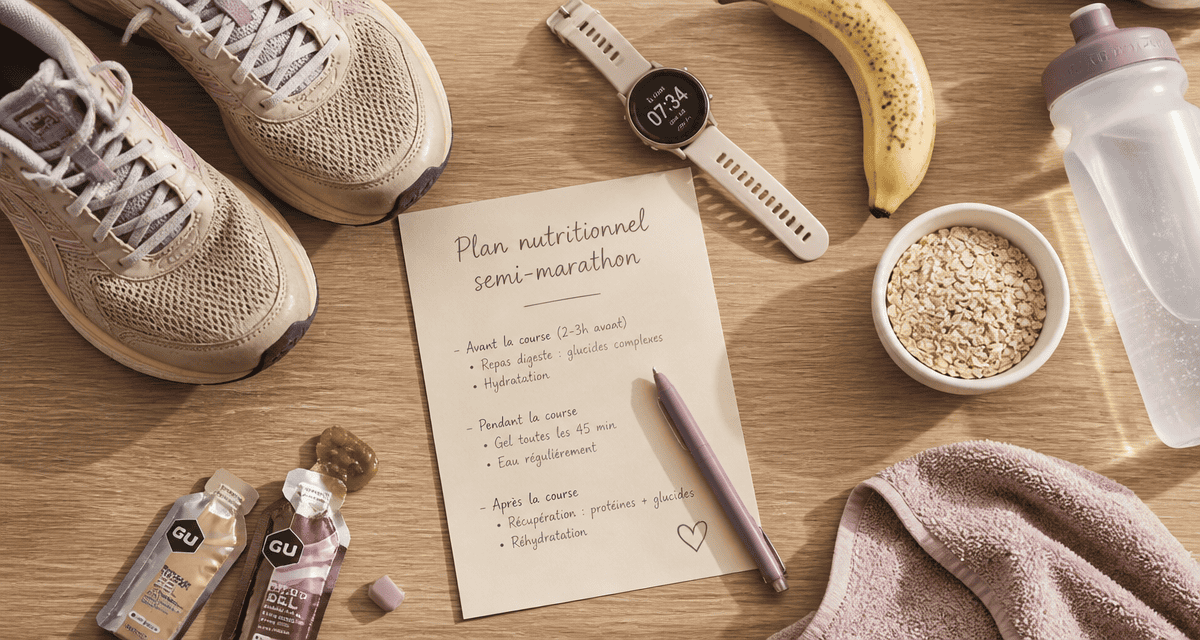 07:34
Plan nutritionnel
semi-marathon
- Avant la course (2-3h avaat)
• Repas digeste : glucides complexes
• Hydratation
- Pendant la course
• Gel toutes les 45 min
• Eau régulièrement
- Après la course
• Récupération : protéines + glucides
• Réhydratation
GU
GU